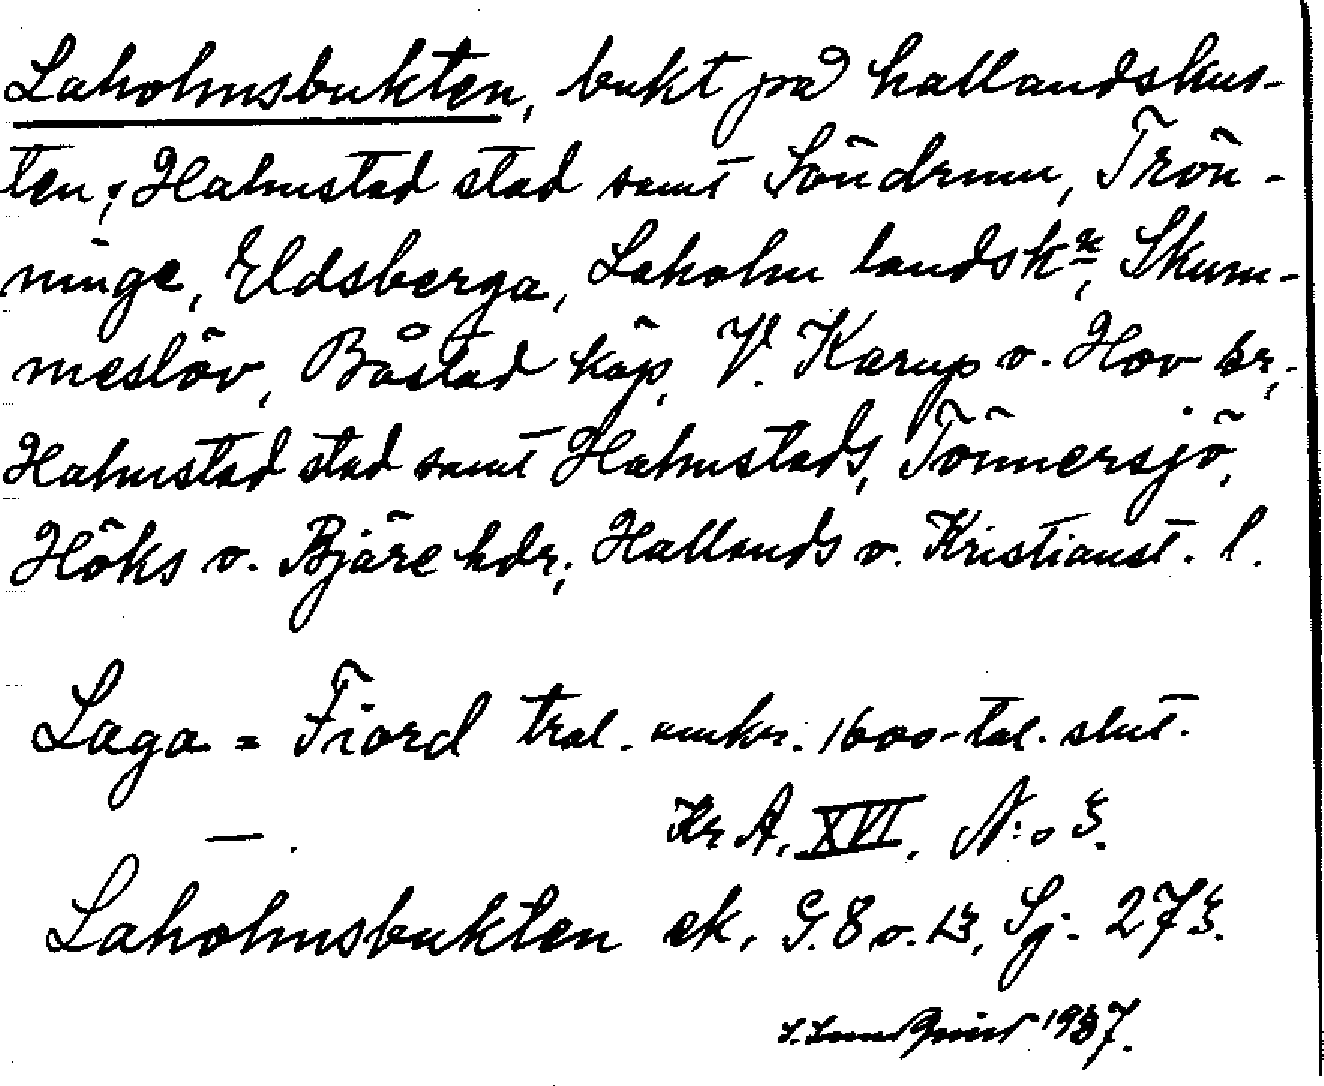 Laholmsbukten, bukt på hallandskus-
ten; Halmstad stad samt Söndrum, Trön-
ninge, Eldsberga, Laholm landsk:, Skum-
meslöv, Båstad köp, V. Karup o. Hov sr,
Halmstad stad samt Halmstads, Tönnersjö,
Höks o. Bjäre hdr; Hallands o. Kristianst. l.
Laga = Fiord trol. omkr. 1600-tal. slut.
Kr A. XVI. N:o 3.
— .
Laholmsbukten ek. G. 8 o. 13, Sj. 273.
1937.